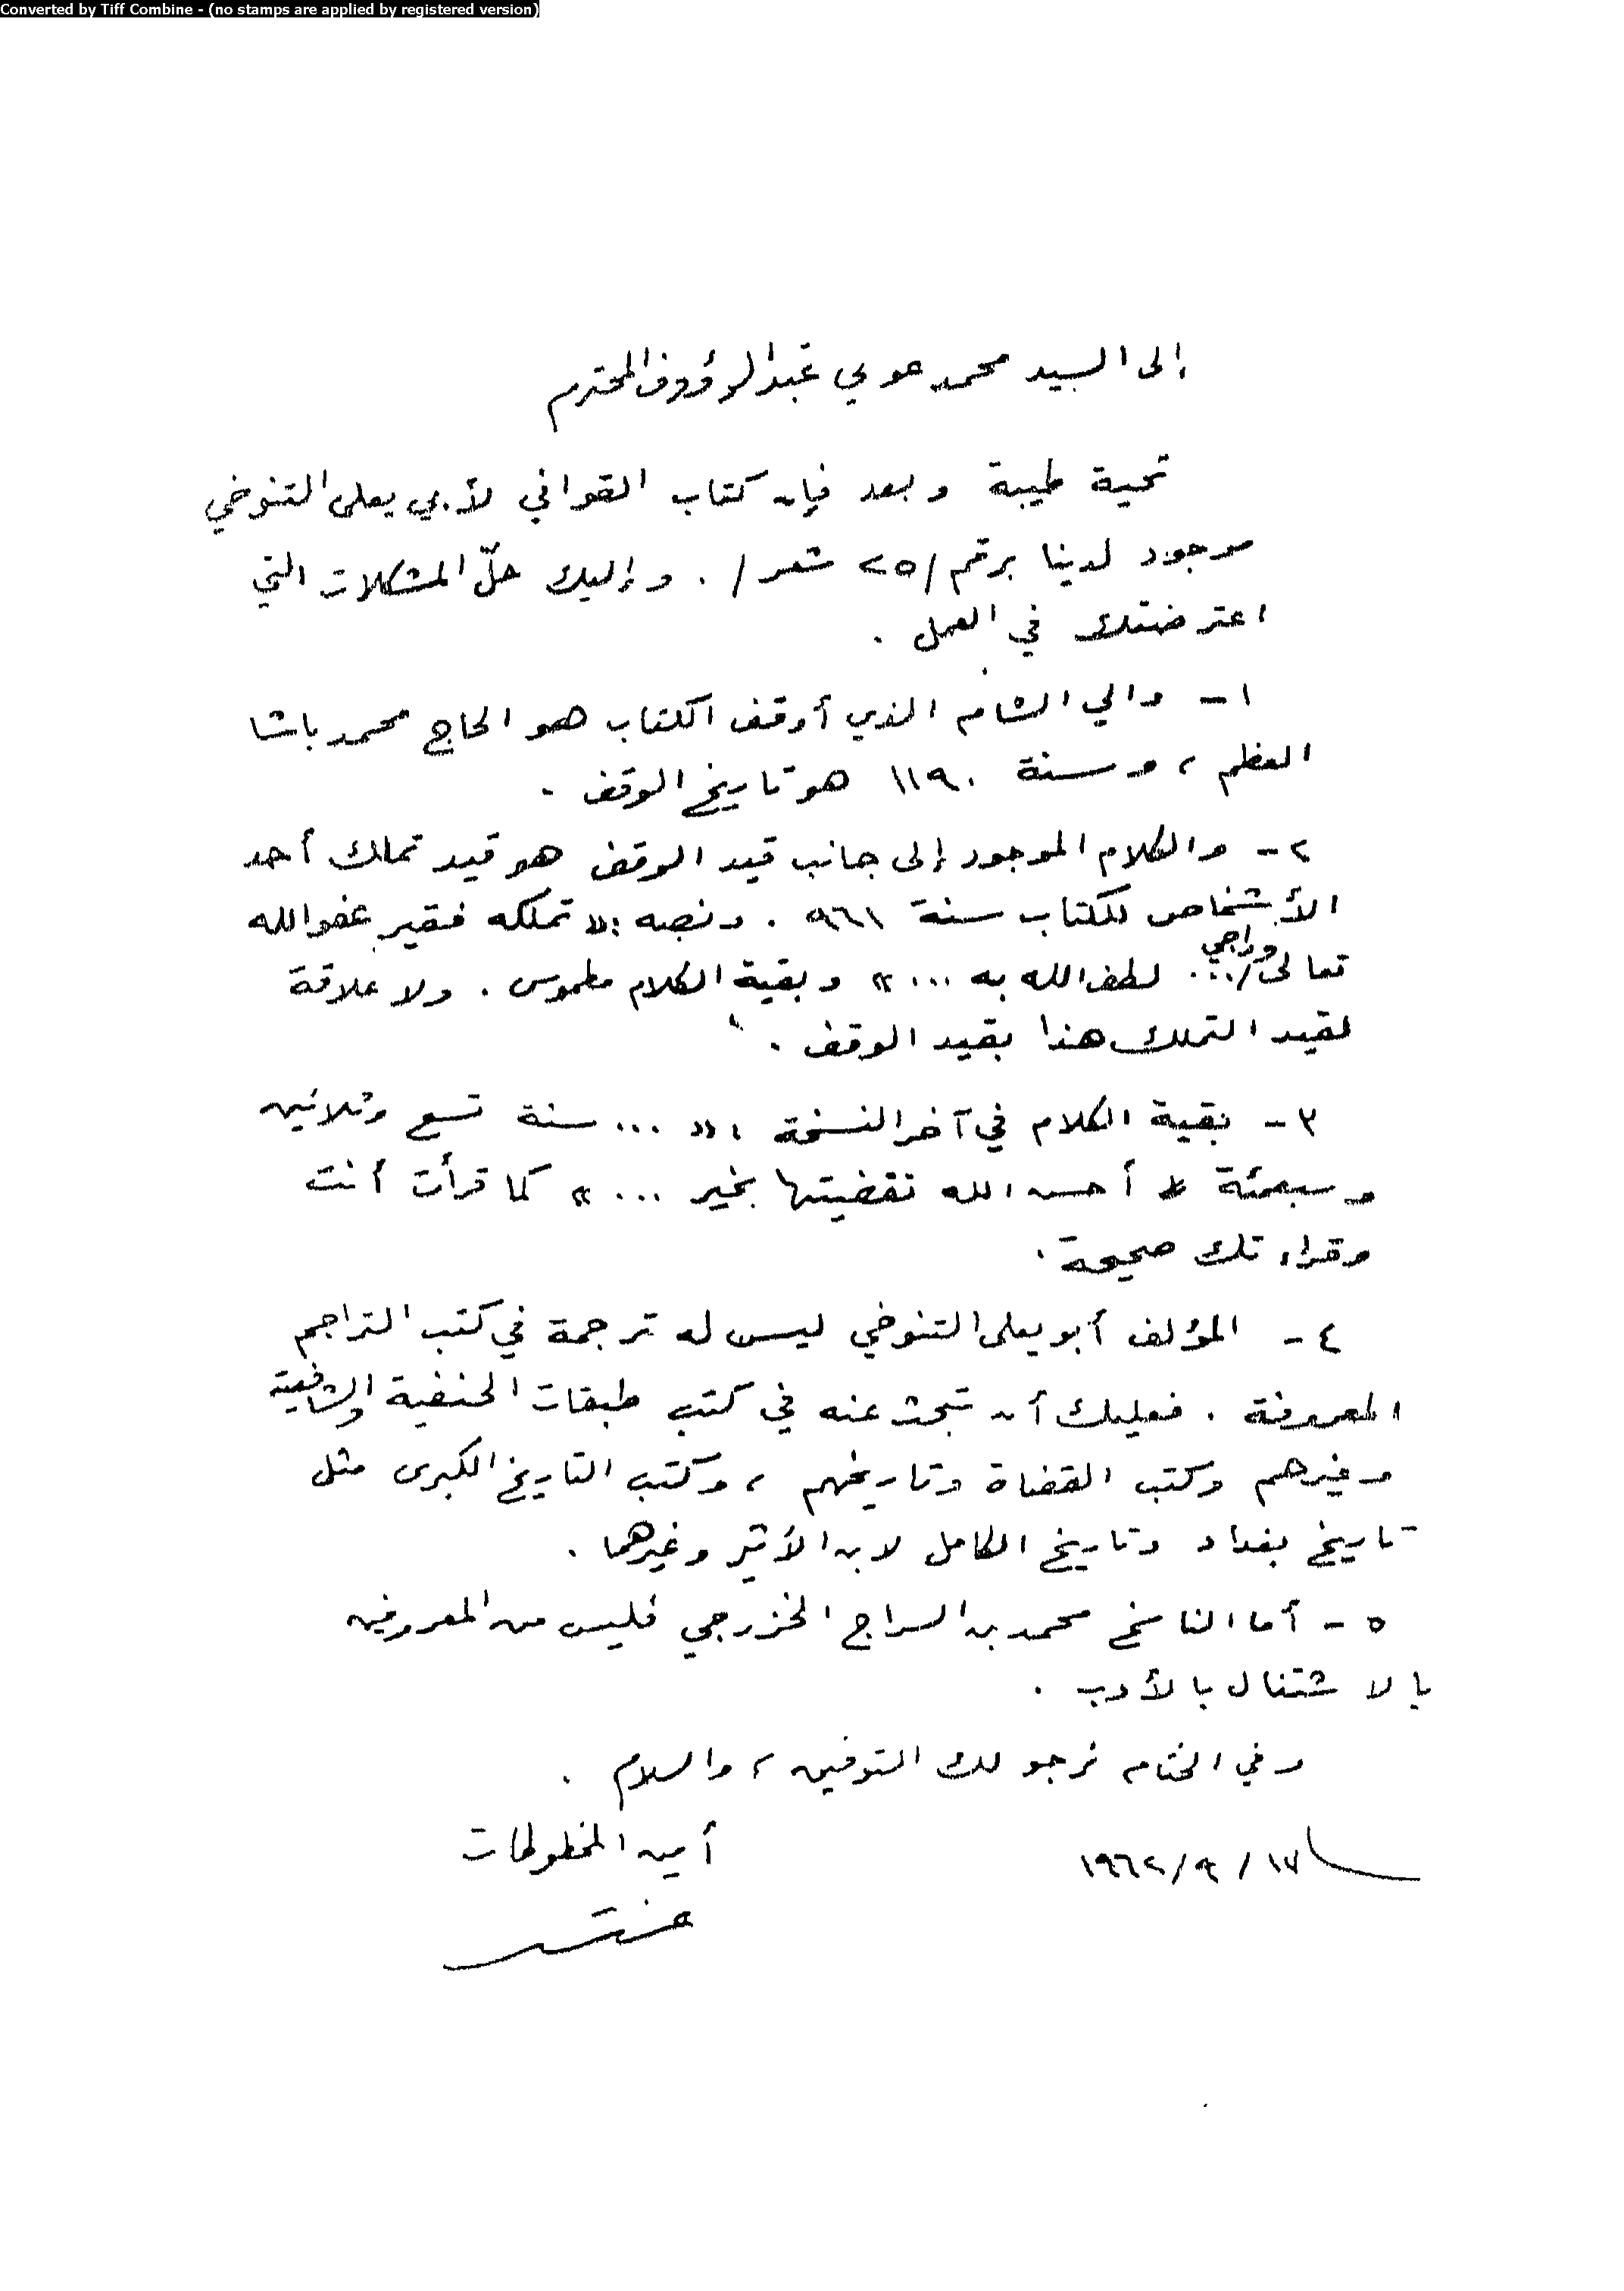 Converted by Tiff Combine - (no stamps are applied by registered version)
إلى السيد محمد عوني عبد الرؤوف المحترم
تحية طيبة وبعد فإن كتاب القوافي لأبي يعلى التنوخي
موجود لدينا برقم /٢٥ شعر/ . وإليك حلّ المشكلات التي
اعترضتك في العمل .
١ - والي الشام الذي أوقف الكتاب هو الحاج محمد باشا
العظم ، وسنة ١١٩٠ هو تاريخ الوقف .
٢ - والكلام الموجود إلى جانب قيد الوقف هو قيد تملك أحد
الأشخاص للكتاب سنة ٩٦١ . ونصه : « تملكه فقير عفو الله
تعالى / وراجي ... لطف الله به ... » وبقية الكلام مطموس . ولا علاقة
لقيد التملك هذا بقيد الوقف .
٣ - بقية الكلام في آخر النسخة : « ... سنة تسع وثلاثين
وسبعمئة أحسن الله تقضيتها بخير ... » كما قرأت أنت
وقراءتك صحيحة .
٤ - المؤلف أبو يعلى التنوخي ليس له ترجمة في كتب التراجم
المعروفة . فعليك أن تبحث عنه في كتب طبقات الحنفية والشافعية
وغيرهم وكتب القضاة وتاريخهم ، وكتب التاريخ الكبرى مثل
تاريخ بغداد وتاريخ الكامل لابن الأثير وغيرهما .
٥ - أما الناسخ محمد بن السراج الخزرجي فليس من المعروفين
بالاشتغال بالأدب .
وفي الختام نرجو لك التوفيق ، والسلام .
أمين المخطوطات
١٧ / ٩ / ١٩٦٢